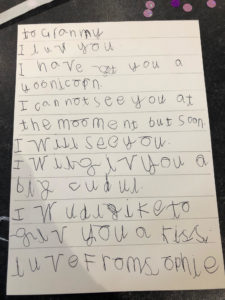 to Granmy
I luv you
I have got you a
yoonicorn.
I cannot see you at
the mooment but soon
I will see you.
I wil giv you a
big cudul.
I wud like to
giv you a kiss.
luve from sophie